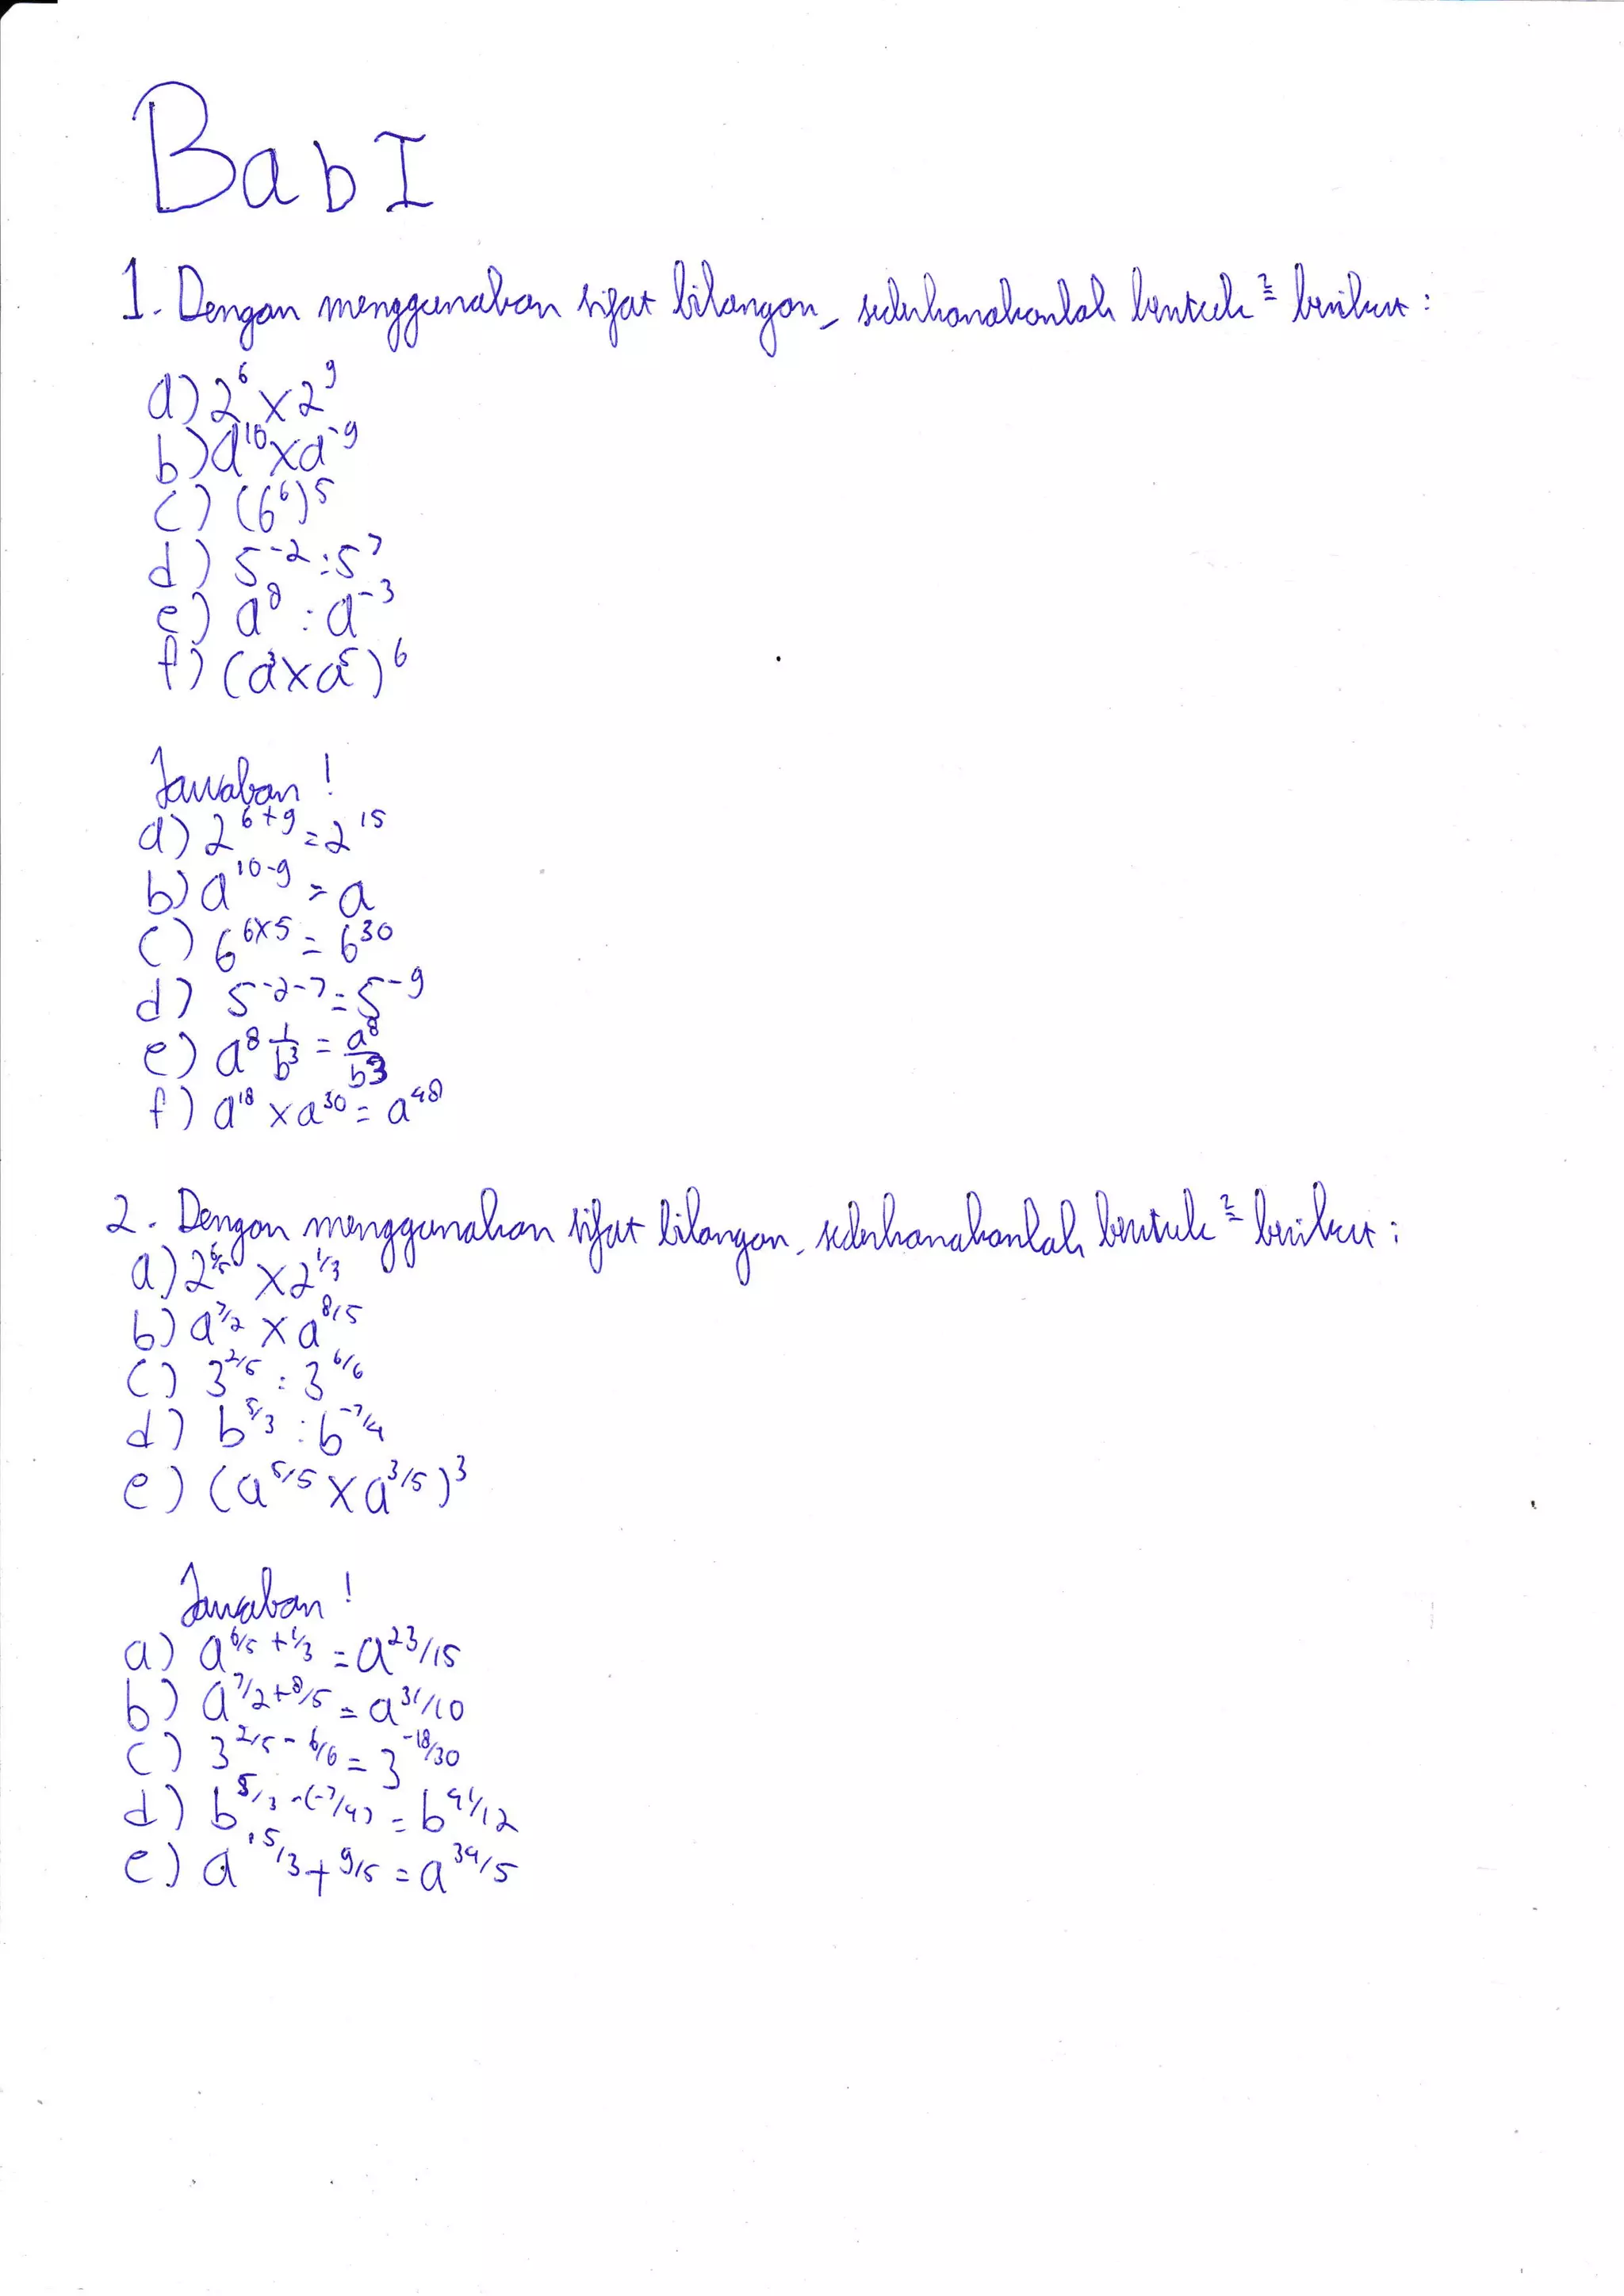 Bab I
1. Dengan menggunakan sifat bilangan, sederhanakanlah bentuk² berikut :
a) 2⁶ x 2⁹
b) a¹⁰ x a⁻⁹
c) (6⁶)⁵
d) 5⁻² : 5⁷
e) a⁸ : a⁻³
f) (a³ x a⁵)⁶
Jawaban !
a) 2⁶⁺⁹ = 2¹⁵
b) a¹⁰⁻⁹ = a
c) 6^(6x5) = 6³⁰
d) 5⁻²⁻⁷ = 5⁻⁹
e) a⁸ 1/b³ = a⁸/b³
f) a¹⁸ x a³⁰ = a⁴⁸
2. Dengan menggunakan sifat bilangan, sederhanakanlah bentuk² berikut :
a) 2^6/5 x 2^1/3
b) a^7/2 x a^8/5
c) 3^2/5 : 3^6/6
d) b^5/3 : b^-7/4
e) (a^5/5 x a^3/5)³
Jawaban !
a) a^6/5 + 1/3 = a^23/15
b) a^7/2 + 8/5 = a^31/10
c) 3^2/5 - 6/6 = 3^-18/30
d) b^5/3 - (-7/4) = b^41/12
e) a^15/3 + 9/5 = a^34/5